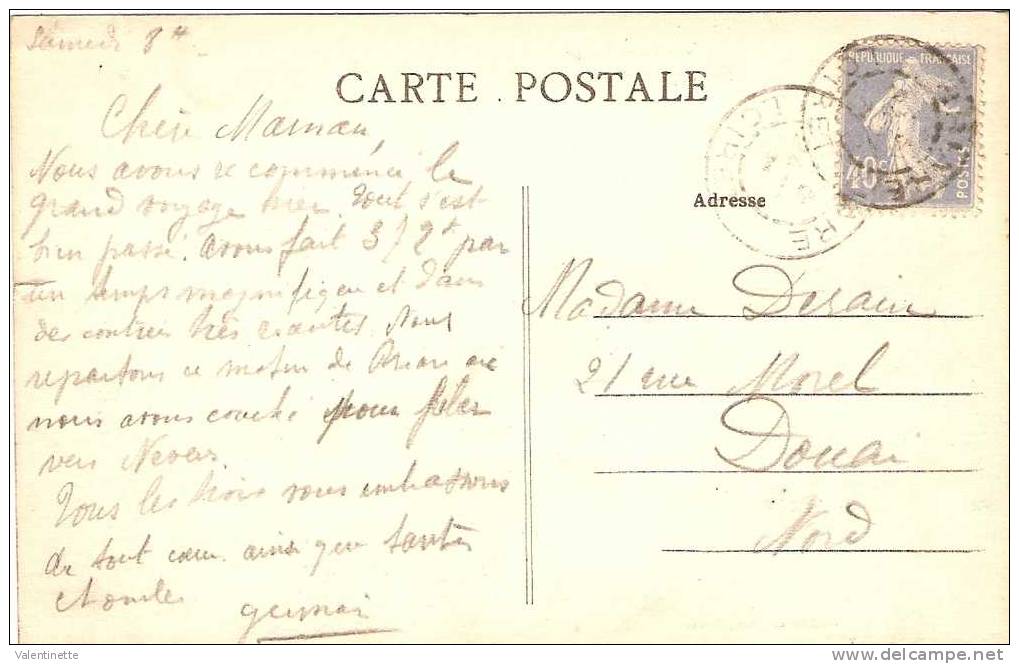 Samedi 8 H
CARTE POSTALE
Chère Maman,
Nous avons recommencé le
grand voyage hier. Tout s'est
bien passé. Avons fait par
un temps magnifique et dans
des contrées très riantes. Nous
repartons ce matin de où
nous avons couché pour filer
vers Nevers
Tous les trois vous embrassons
de tout cœur ainsi que tante
et oncle
Germain
REPUBLIQUE FRANÇAISE
40c
POSTES
Adresse
Madame Derain
21 rue Morel
Douai
Nord
Valentinette
delcampe.net